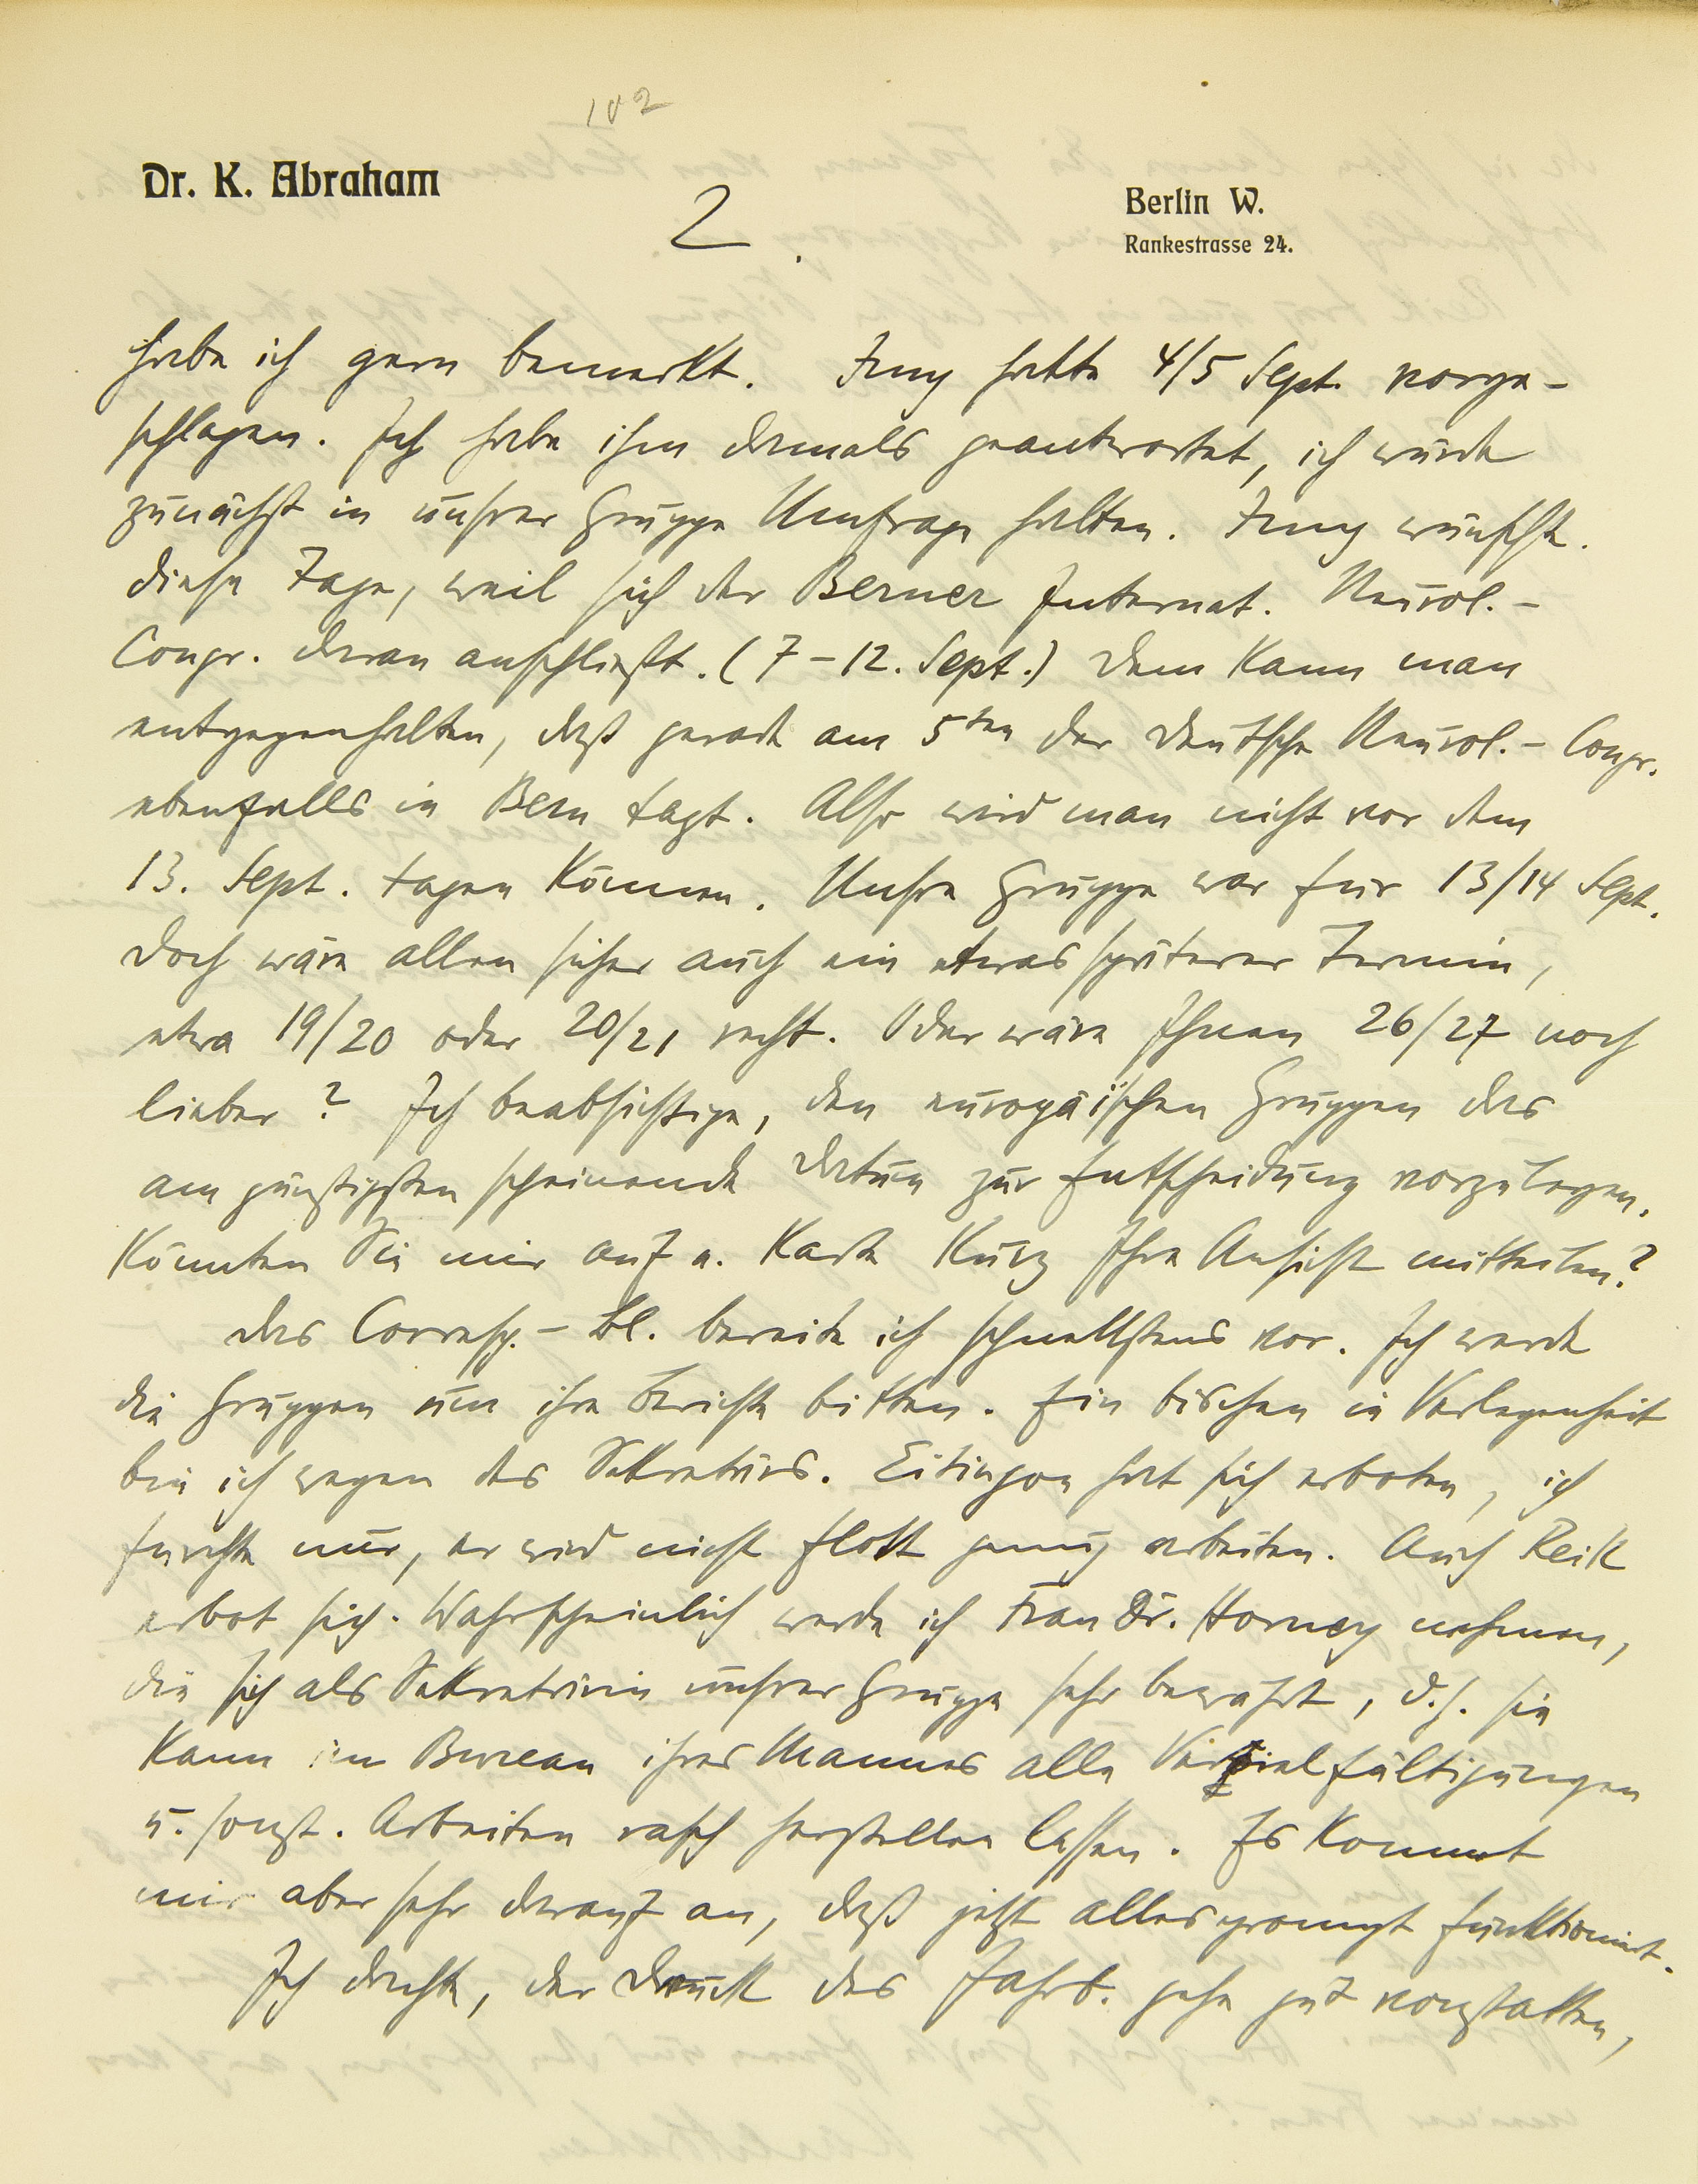 102
Dr. K. Abraham
2.
Berlin W.
Rankestrasse 24.
habe ich gern bemerkt. Jung hatte 4/5 Sept. vorge-
schlagen. Ich habe ihm damals geantwortet, ich würde
zunächst in unsrer Gruppe Umfrage halten. Jung wünscht
diese Tage, weil sich der Berner Internat. Neurol.-
Congr. daran anschließt. (7–12. Sept.) Dem kann man
entgegenhalten, daß gerade am 5ten der Deutsche Neurol.- Congr.
ebenfalls in Bern tagt. Also wird man nicht vor dem
13. Sept. tagen können. Unsre Gruppe war für 13/14 Sept.
Doch wäre allen sicher auch ein etwas späterer Termin,
etwa 19/20 oder 20/21 recht. Oder wäre Ihnen 26/27 noch
lieber? Ich beabsichtige, den europäischen Gruppen das
am günstigsten scheinende Datum zur Entscheidung vorzulegen.
Könnten Sie mir auf e. Karte kurz Ihre Ansicht mitteilen?
Das Corresp.- Bl. bereite ich schnellstens vor. Ich werde
die Gruppen um ihre Berichte bitten. Ein bischen in Verlegenheit
bin ich wegen des Sekretärs. Eitingon hat sich erboten, ich
fürchte nur, er wird nicht flott genug arbeiten. Auch Reik
erbot sich. Wahrscheinlich werde ich Frau Dr. Horney nehmen,
die sich als Sekretärin unsrer Gruppe sehr bewährt, d.h. sie
kann im Bureau ihres Mannes alle Vervielfältigungen
u. sonst. Arbeiten rasch herstellen lassen. Es kommt
mir aber sehr darauf an, daß jetzt alles prompt funktioniert.
Ich dachte, der Druck des Jahrb. gehe gut vonstatten,